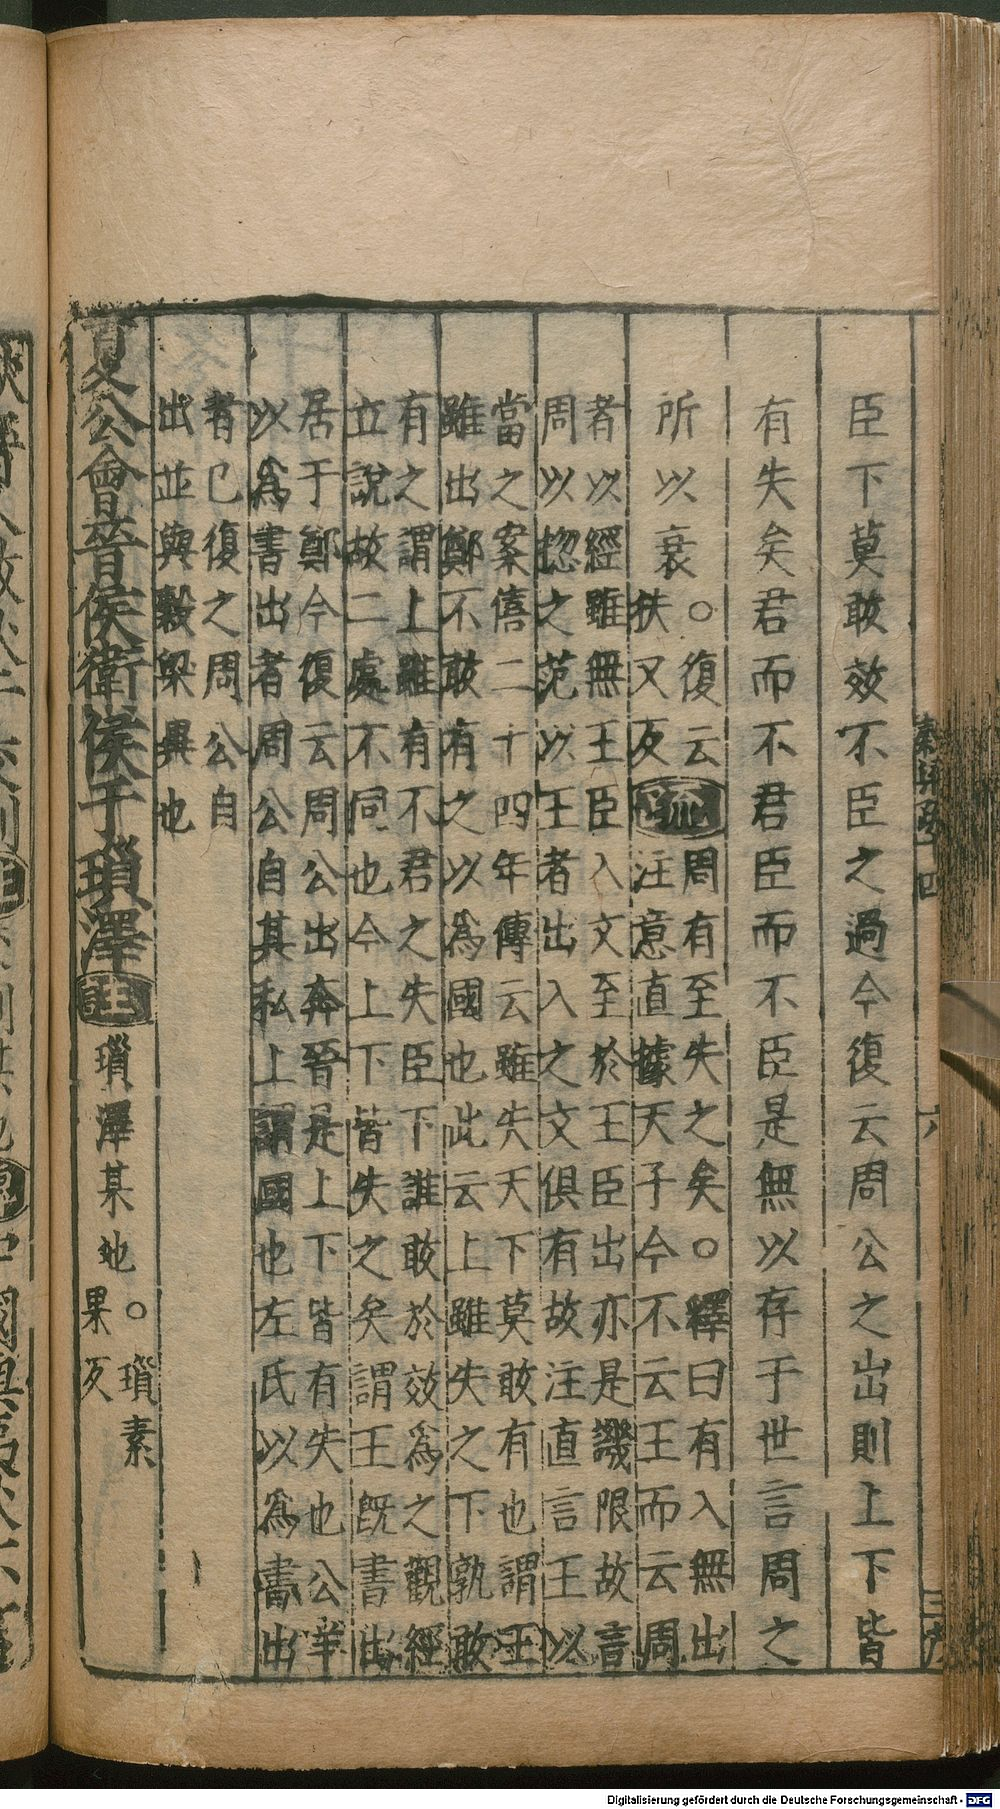 臣下莫敢效不臣之過今復云周公之出則上下皆
有失矣君而不君臣而不臣是無以存于世言周之
所以衰。復云
扶又反
疏
周有至失之矣。釋曰有入無出
注意直據天子今不云王而云周
者以經雖無王臣入文至於王臣出亦是譏限故言
周以揔之范以王者出入之文俱有故注直言王以
當之案僖二十四年傳云雖失天下莫敢有也謂王
雖出鄭不敢有之以為國也此云上雖失之下孰敢
有之謂上雖有不君之失臣下誰敢於效為之觀經
立說故二處不同也今上下皆失之矣謂王既書出
居于鄭今復云周公出奔晉是上下皆有失也公羊
以為書出者周公自其私上謂國也左氏以為書出
者已復之周公自
出並與穀梁異也
夏公會晉侯衛侯于瑣澤
註
瑣澤某地。瑣素
果反
Digitalisierung gefördert durch die Deutsche Forschungsgemeinschaft - DFG